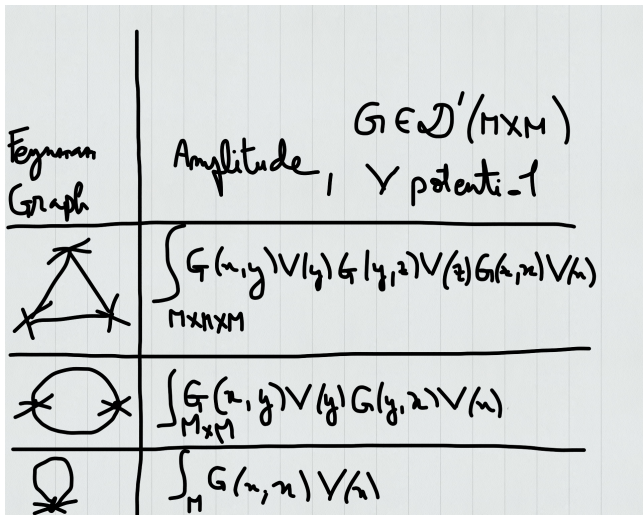 Feynman
Graph
Amplitude, V potential
G ∈ D'(M×M)
∫ G(x,y)V(y)G(y,z)V(z)G(z,x)V(x)
M×M×M
∫ G(x,y)V(y)G(y,x)V(x)
M×M
∫ G(x,x)V(x)
M